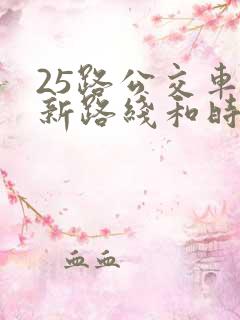 25路公交車
新路綫和時
血血